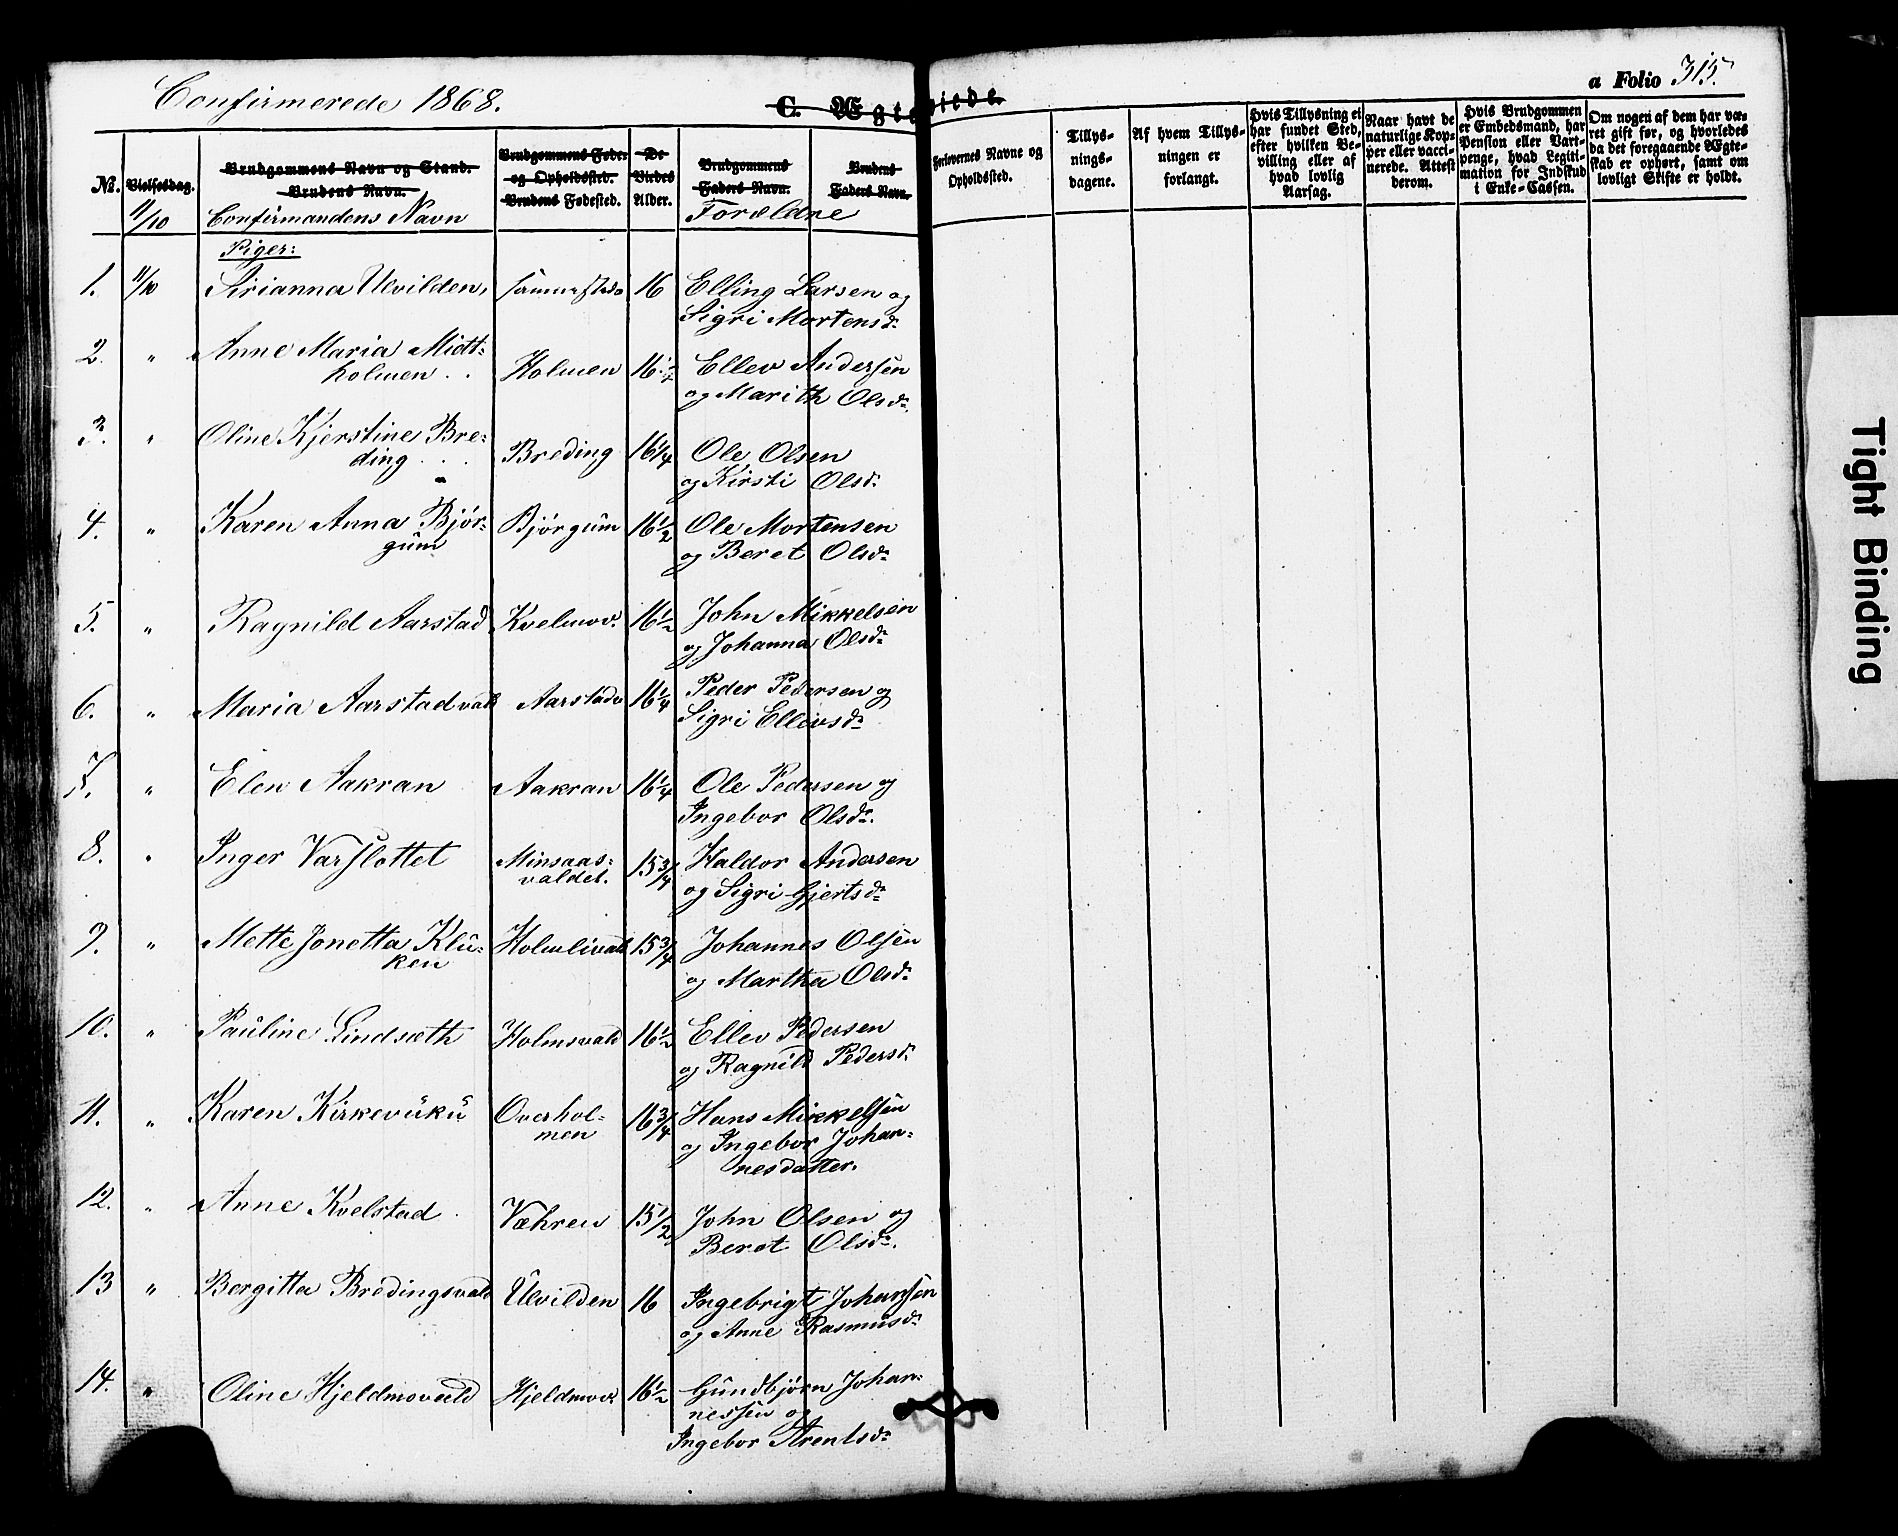 Confirmerede 1868.
C. Ægteviede.
a Folio 315.
No.
Vielsesdag.
11/10
Brudgommens Navn og Stand.
Brudens Navn.
Confirmandens Navn
Brudgommens Føde-
og Opholdssted.
Brudens Fødested.
De
Viedes
Alder.
Brudgommens
Faders Navn.
Brudens
Faders Navn.
Forældre
Forlovernes Navne og
Opholdssted.
Tillys-
nings-
dagene.
Af hvem Tillys-
ningen er
forlangt.
Hvis Tillysning ei
har fundet Sted,
efter hvilken Be-
villing eller af
hvad lovlig
Aarsag.
Naar havt de
naturlige Kop-
per eller vacci-
nerede. Attest
derom.
Hvis Brudgommen
er Embedsmand, har
Pension eller Vart-
penge, hvad Legiti-
mation for Indskud
i Enke-Cassen.
Om nogen af dem har væ-
ret gift før, og hvorledes
da det foregaaende Ægte-
skab er ophørt, samt om
lovligt Skifte er holdt.
Piger:
1. 11/10 Sirianna Ulvilden, sammesteds 16 Elling Larsen og
Sigri Mortensd.
2. " Anne Maria Midt-
holmen . . Holmen 16 Ellev Andersen
og Marith Olsd.
3. " Oline Kjerstine Bre-
ding . . . Breding 16 1/4 Ole Olsen
og Kirsti Olsd.
4. " Karen Anna Bjør-
gum Bjørgum 16 1/2 Ole Mortensen
og Beret Olsd.
5. " Ragnild Aarstad Kvelmov. 16 1/2 John Mikkelsen
og Johanna Olsd.
6. " Maria Aarstadvald Aarstadv 16 1/4 Peder Pedersen og
Sigri Ellevsd.
7. " Elen Aakran Aakran 16 1/4 Ole Pedersen og
Ingebor Olsd.
8. " Inger Varslottet Minsaas-
valdet. 15 3/4 Haldor Andersen
og Sigri Gjertsd.
9. " Mette Jonetta Klu-
ken Holmlivald 15 3/4 Johannes Olsen
og Martha Olsd.
10. " Pauline Lindsæth Holmsvald 16 1/2 Ellev Pedersen
og Ragnild Pedersd.
11. " Karen Kirkevuku Overhol-
men 16 3/4 Hans Mikkelsen
og Ingebor Johan-
nesdatter.
12. " Anne Kvelstad Væhren 15 1/2 John Olsen og
Beret Olsd.
13 " Bergitta Bredingsvald Ulvilden 16 Ingebrigt Johansen
og Anne Rasmusd.
14. " Oline Hjeldmovald Hjeldmov. 16 1/2 Gundbjørn Johan-
nessen og
Ingebor Arentsd.
Tight Binding